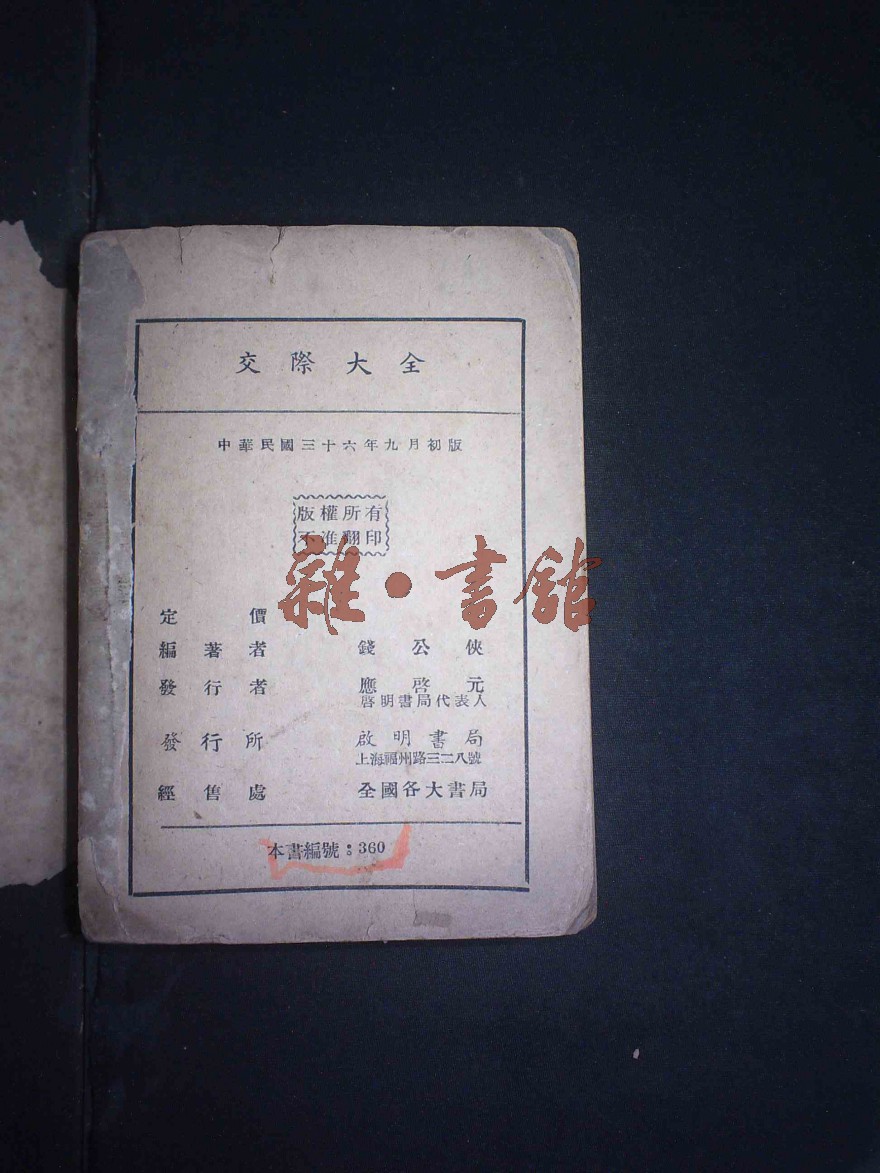 交際大全
中華民國三十六年九月初版
版權所有
不准翻印
雜·書館
定價
編著者 錢公俠
發行者 應啓元
啓明書局代表人
發行所 啟明書局
上海福州路三二八號
經售處 全國各大書局
本書編號：360